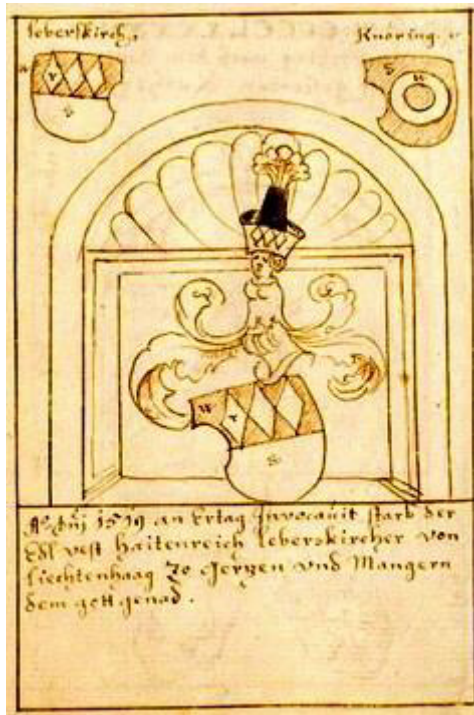 leberskirch.
Knöring.
W
r
S
S
W
W
r
S
Aº dnj 1519 an Ertag Invocauit starb der
Edl vest Haitenreich leberskircher von
liechtenhaag zo Gerzen vnd Mangern
dem gott genad.